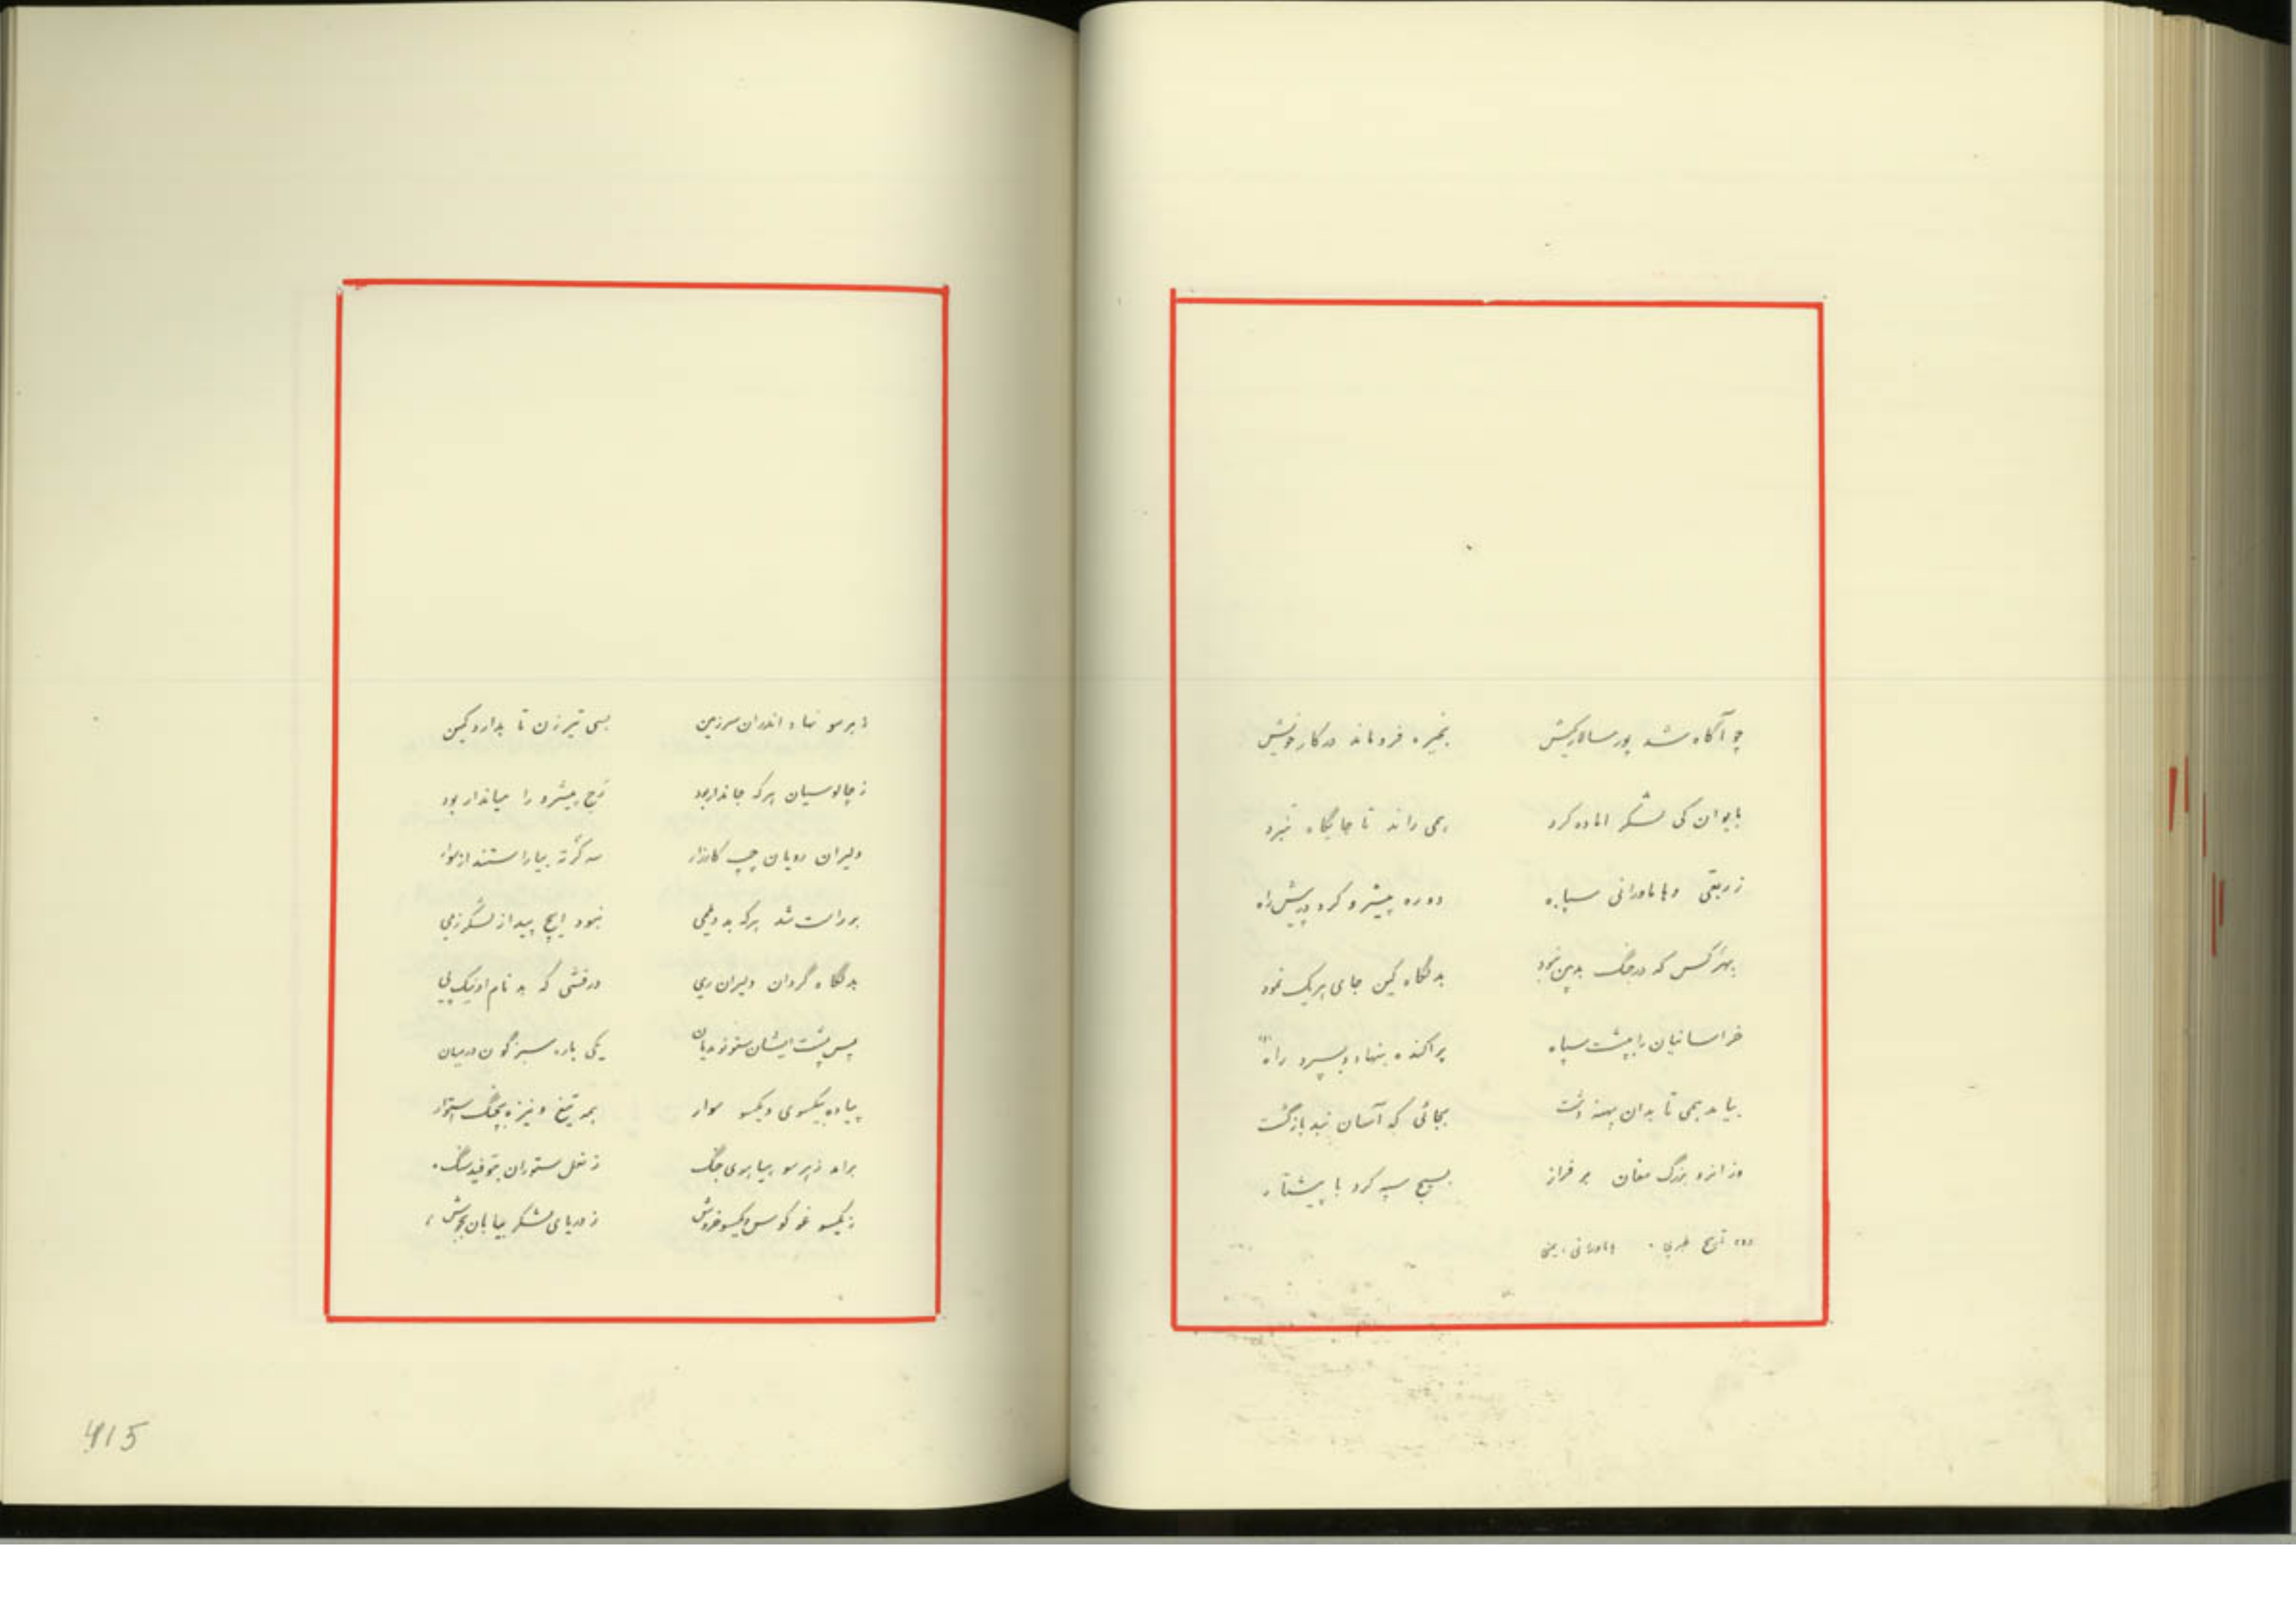 چو آگاه شد پور سالار کیش بخیره فروماند در کار خویش
بایوان کی لشکر آماده کرد همی راند تا جایگاه نبرد
ز ریقی و هاماورانی سپاه دوره پیشرو کرد در پیش راه
بهر کس که در جنگ بدبین نبود بدلگاه کین جای هریک نمود
خراسانیان را بپشت سپاه پراکنده بنهاد و بسپرد راه
بیامد همی تا بدان پهنه دشت بجائی که آسان نبد بازگشت
وز انرو بزرگ مغان سرفراز بسیج سپه کرد با
تاریخ طبری
ز هر سو نهاد اندران سرزمین بسی تیرزن تا بدارد کمین
ز چالوسیان هرکه جاندار بود رخ پیشرو را میاندار بود
دلیران رویان چپ کارزار بیاراستند از سوار
بر راست شد هرکه بد دیلمی نبود ایچ پیدا ز لشکر زمی
بدلگاه گردان دلیران ری درفشی که بد نام او نیک پی
پس پشت ایشان یکی باره سبزگون درمیان
پیاده بیکسوی و یکسو سوار همه تیغ و نیزه بچنگ استوار
برآمد ز هر سو هیاهوی جنگ ز نعل ستوران بتوفید سنگ
ز یکسو غو کوس و یکسو خروش ز دریای لشکر بیابان بجوش
415